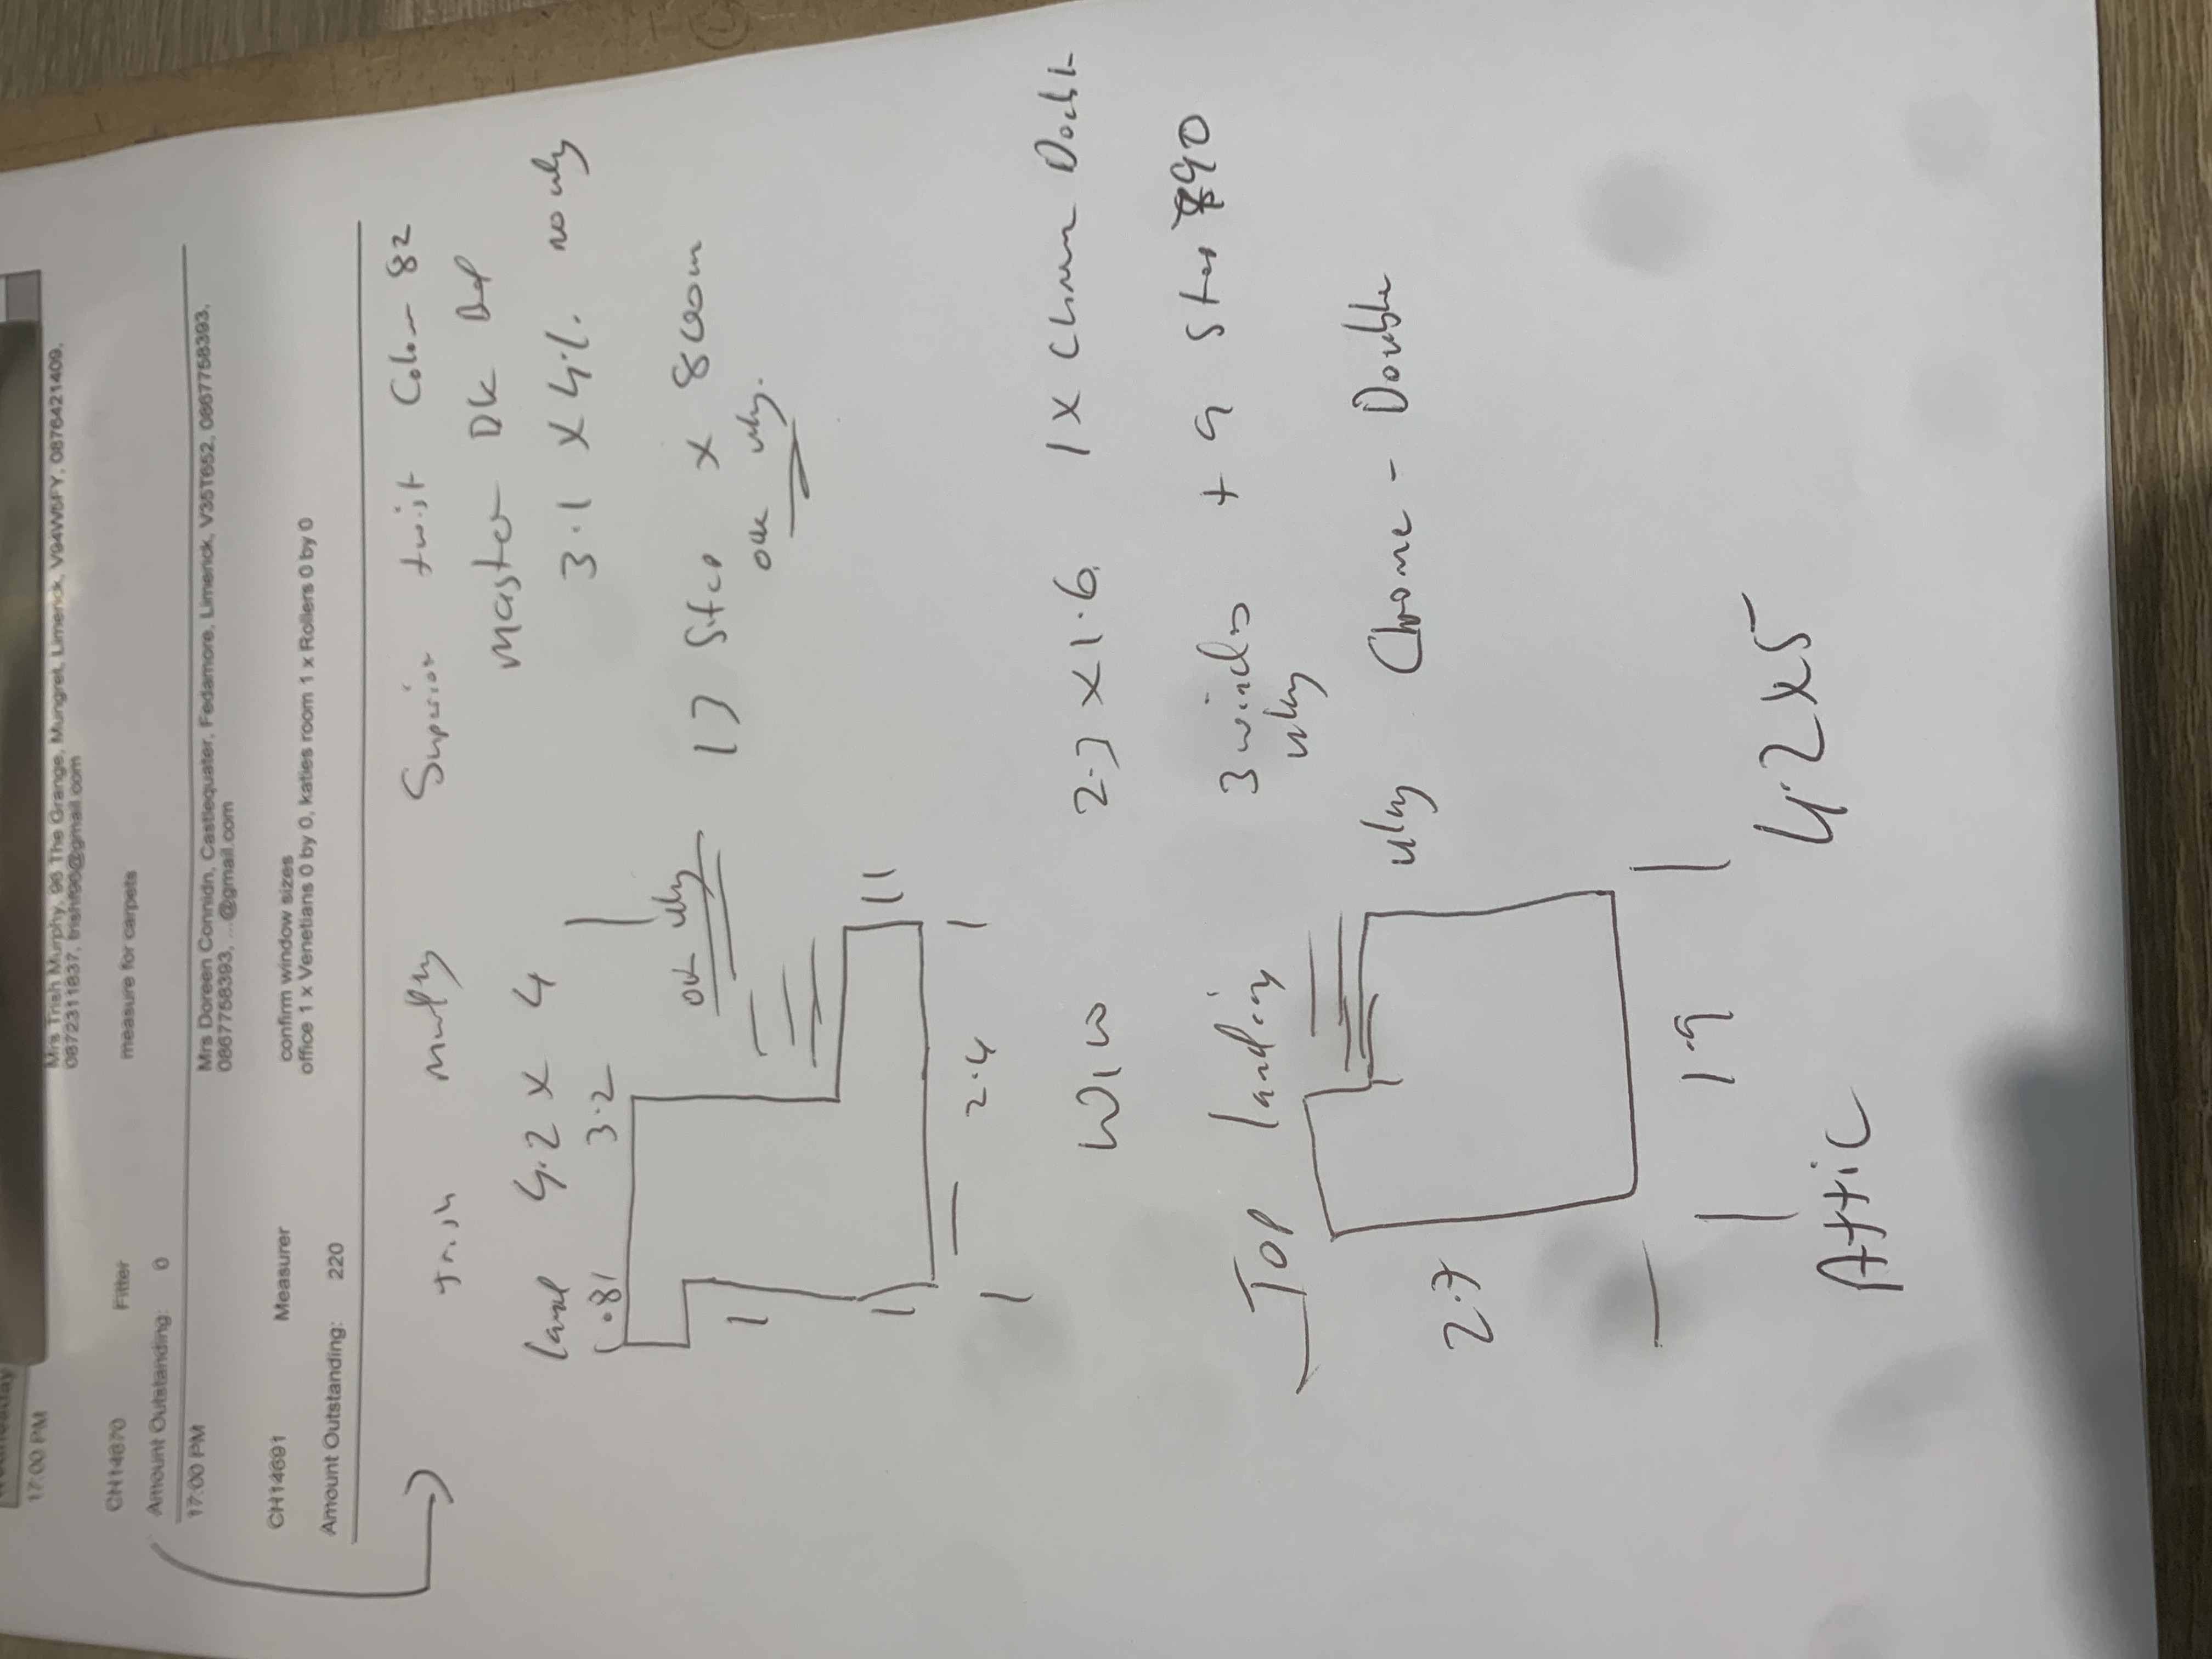 17:00 PM
Mrs Trish Murphy, 96 The Grange, Mungret, Limerick, V94W5FY, 0876421409,
0872311837, trishf96@gmail.com
CH14670 Fitter measure for carpets
Amount Outstanding: 0
17:00 PM
Mrs Doreen Connidn, Castlequater, Fedamore, Limerick, V35T652, 0867758393,
0867758393, ...@gmail.com
CH14691 Measurer confirm window sizes
office 1 x Venetians 0 by 0, katies room 1 x Rollers 0 by 0
Amount Outstanding: 220
Trish Murphy Superior twist Colour 82
Master
land 4.2 x 4 3.1 x 4
.81 3.2
17 Step x 80cm
2.4
WIW 2.7 x 1.6 1 x
Top landing 3 winders + 9 Step 90
Chrome - Double
2.7
1.9
Attic 4.2 x 5